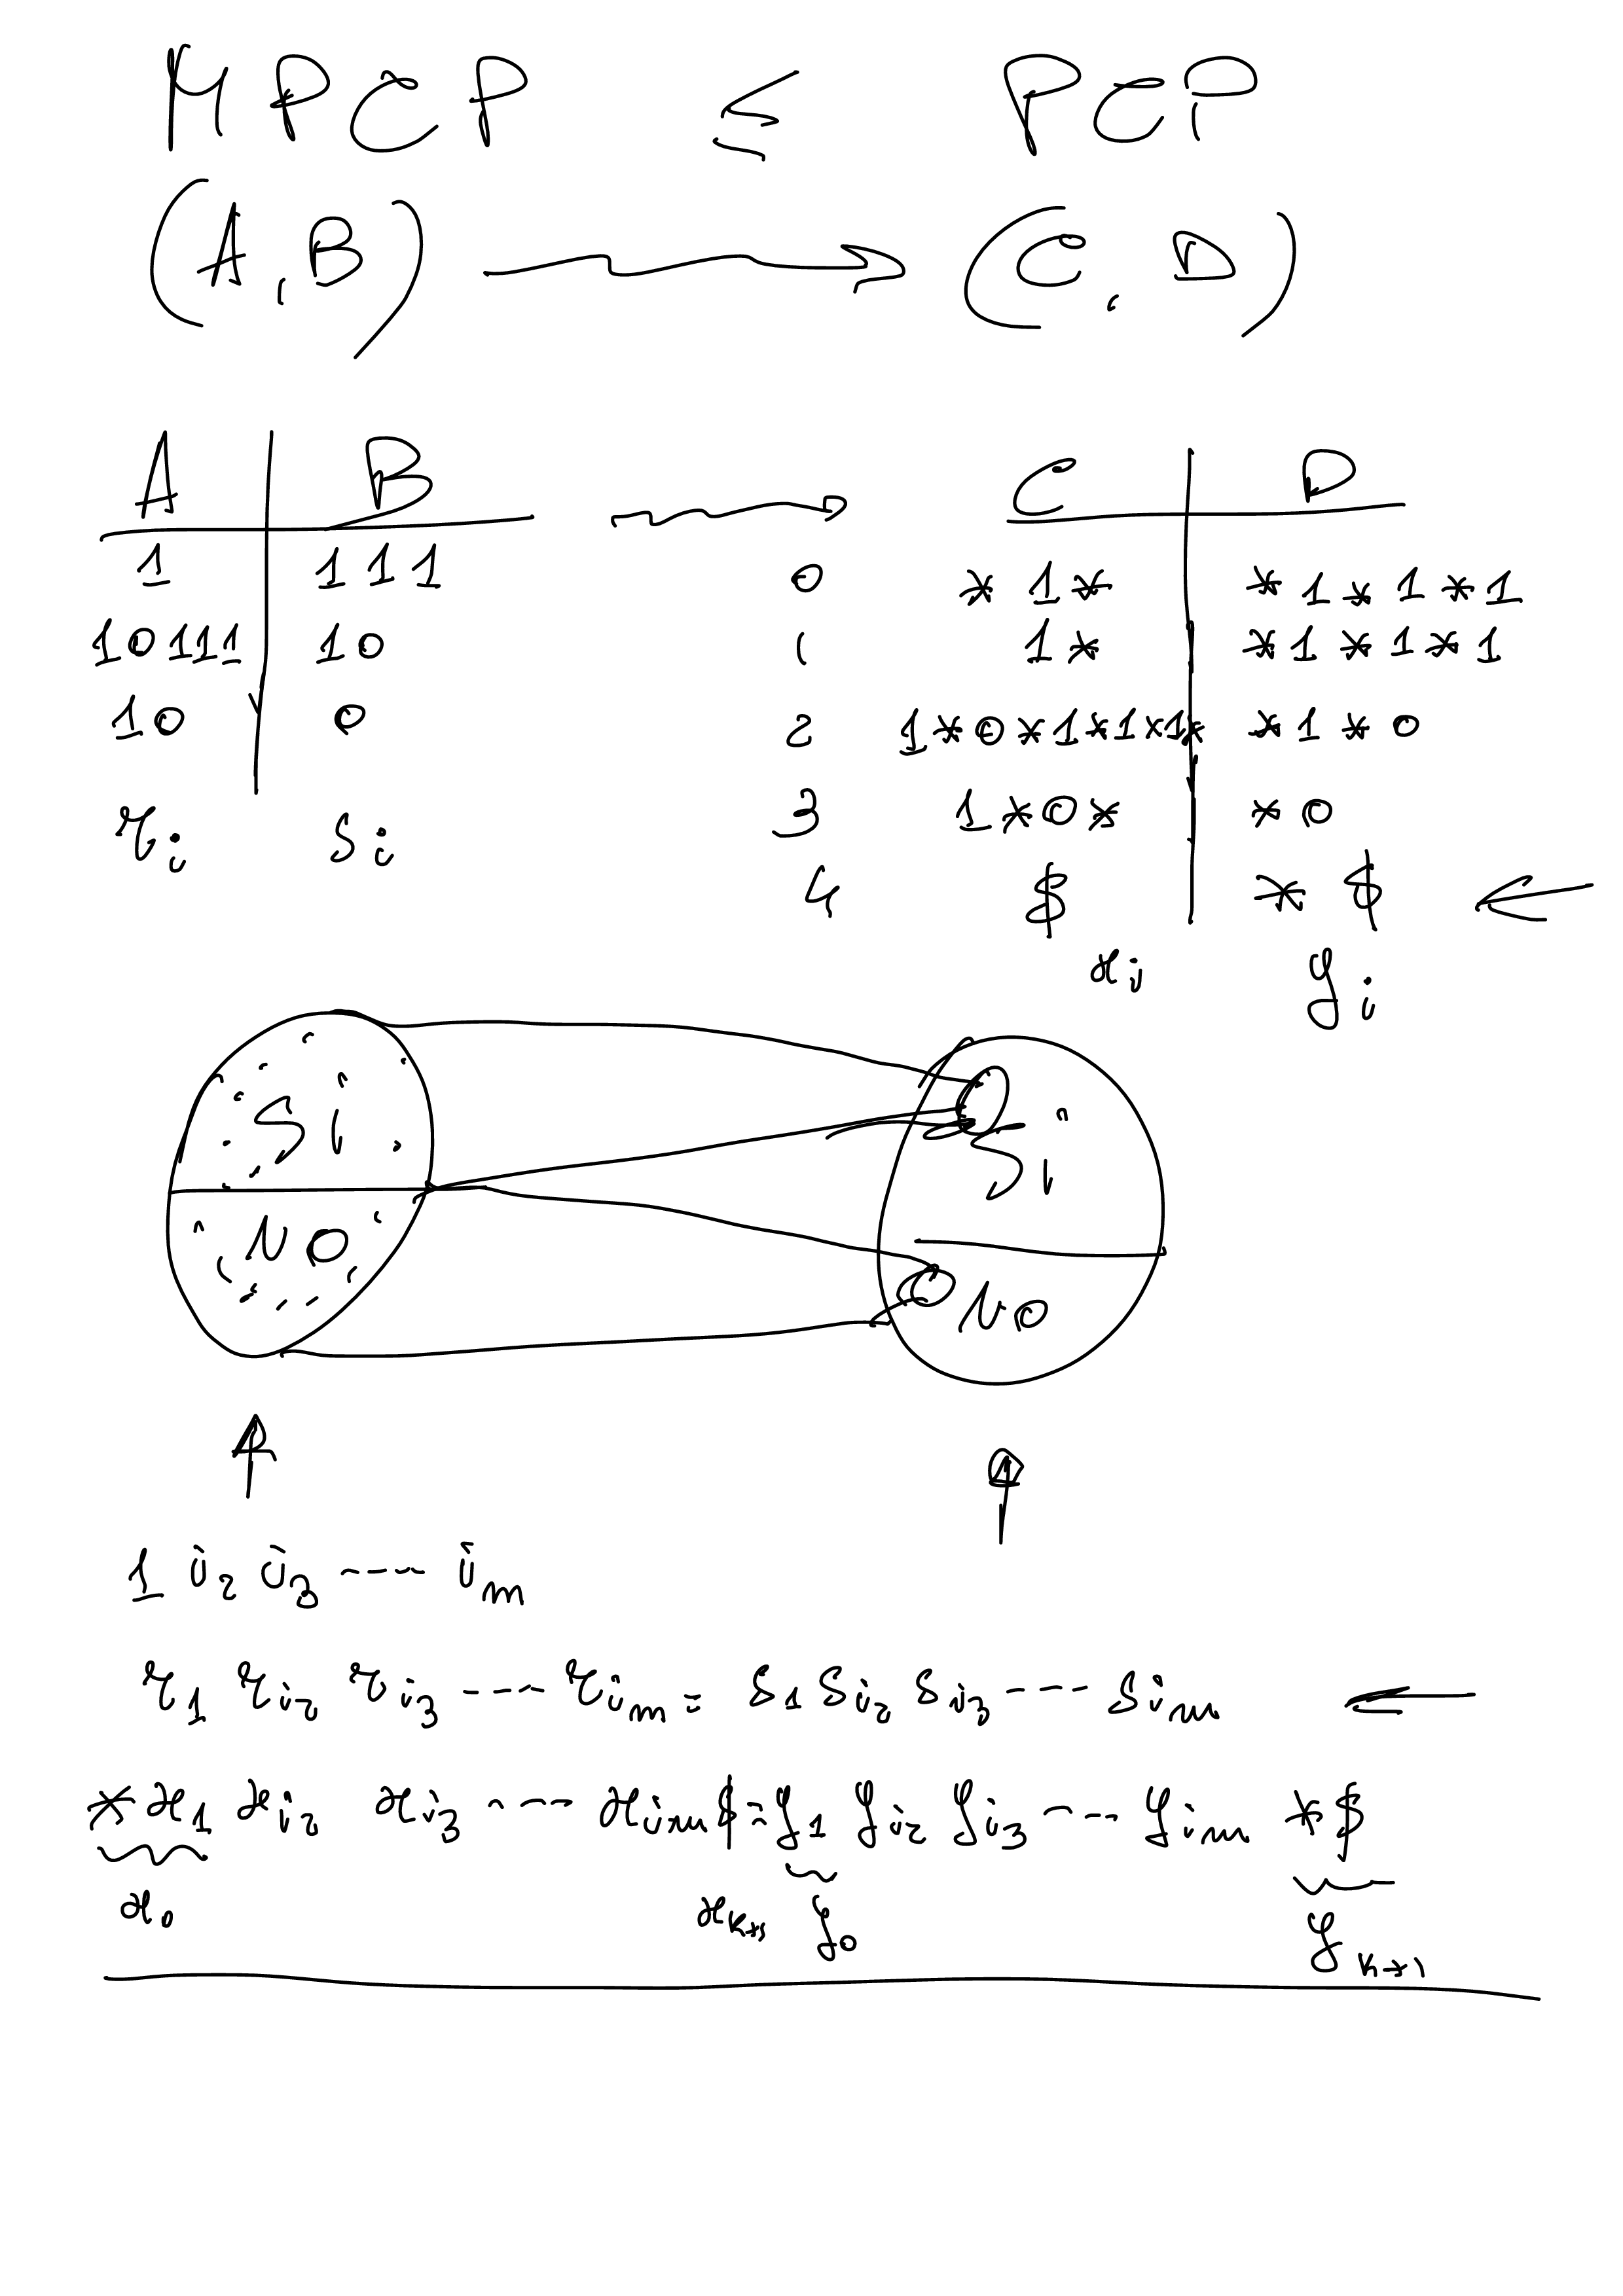 MPCP ≤ PCP
(A, B) → (C, D)
A B → C D
1 111 0 *1* *1*1*1
10111 10 1 1* *1*1*1
10 0 2 1*0*1*1*1* *1*0
ri si 3 1*0* *0
4 $ *$ ←
xi yi
Si Si
NO NO
1 i2 i3 ---- im
r1 ri2 ri3 ---- rim = s1 si2 si3 ---- sim ←
*x1 xi2 xi3 ---- xim$ = y1 yi2 yi3 ---- yim *$
x0 xk+1 y0 yk+1